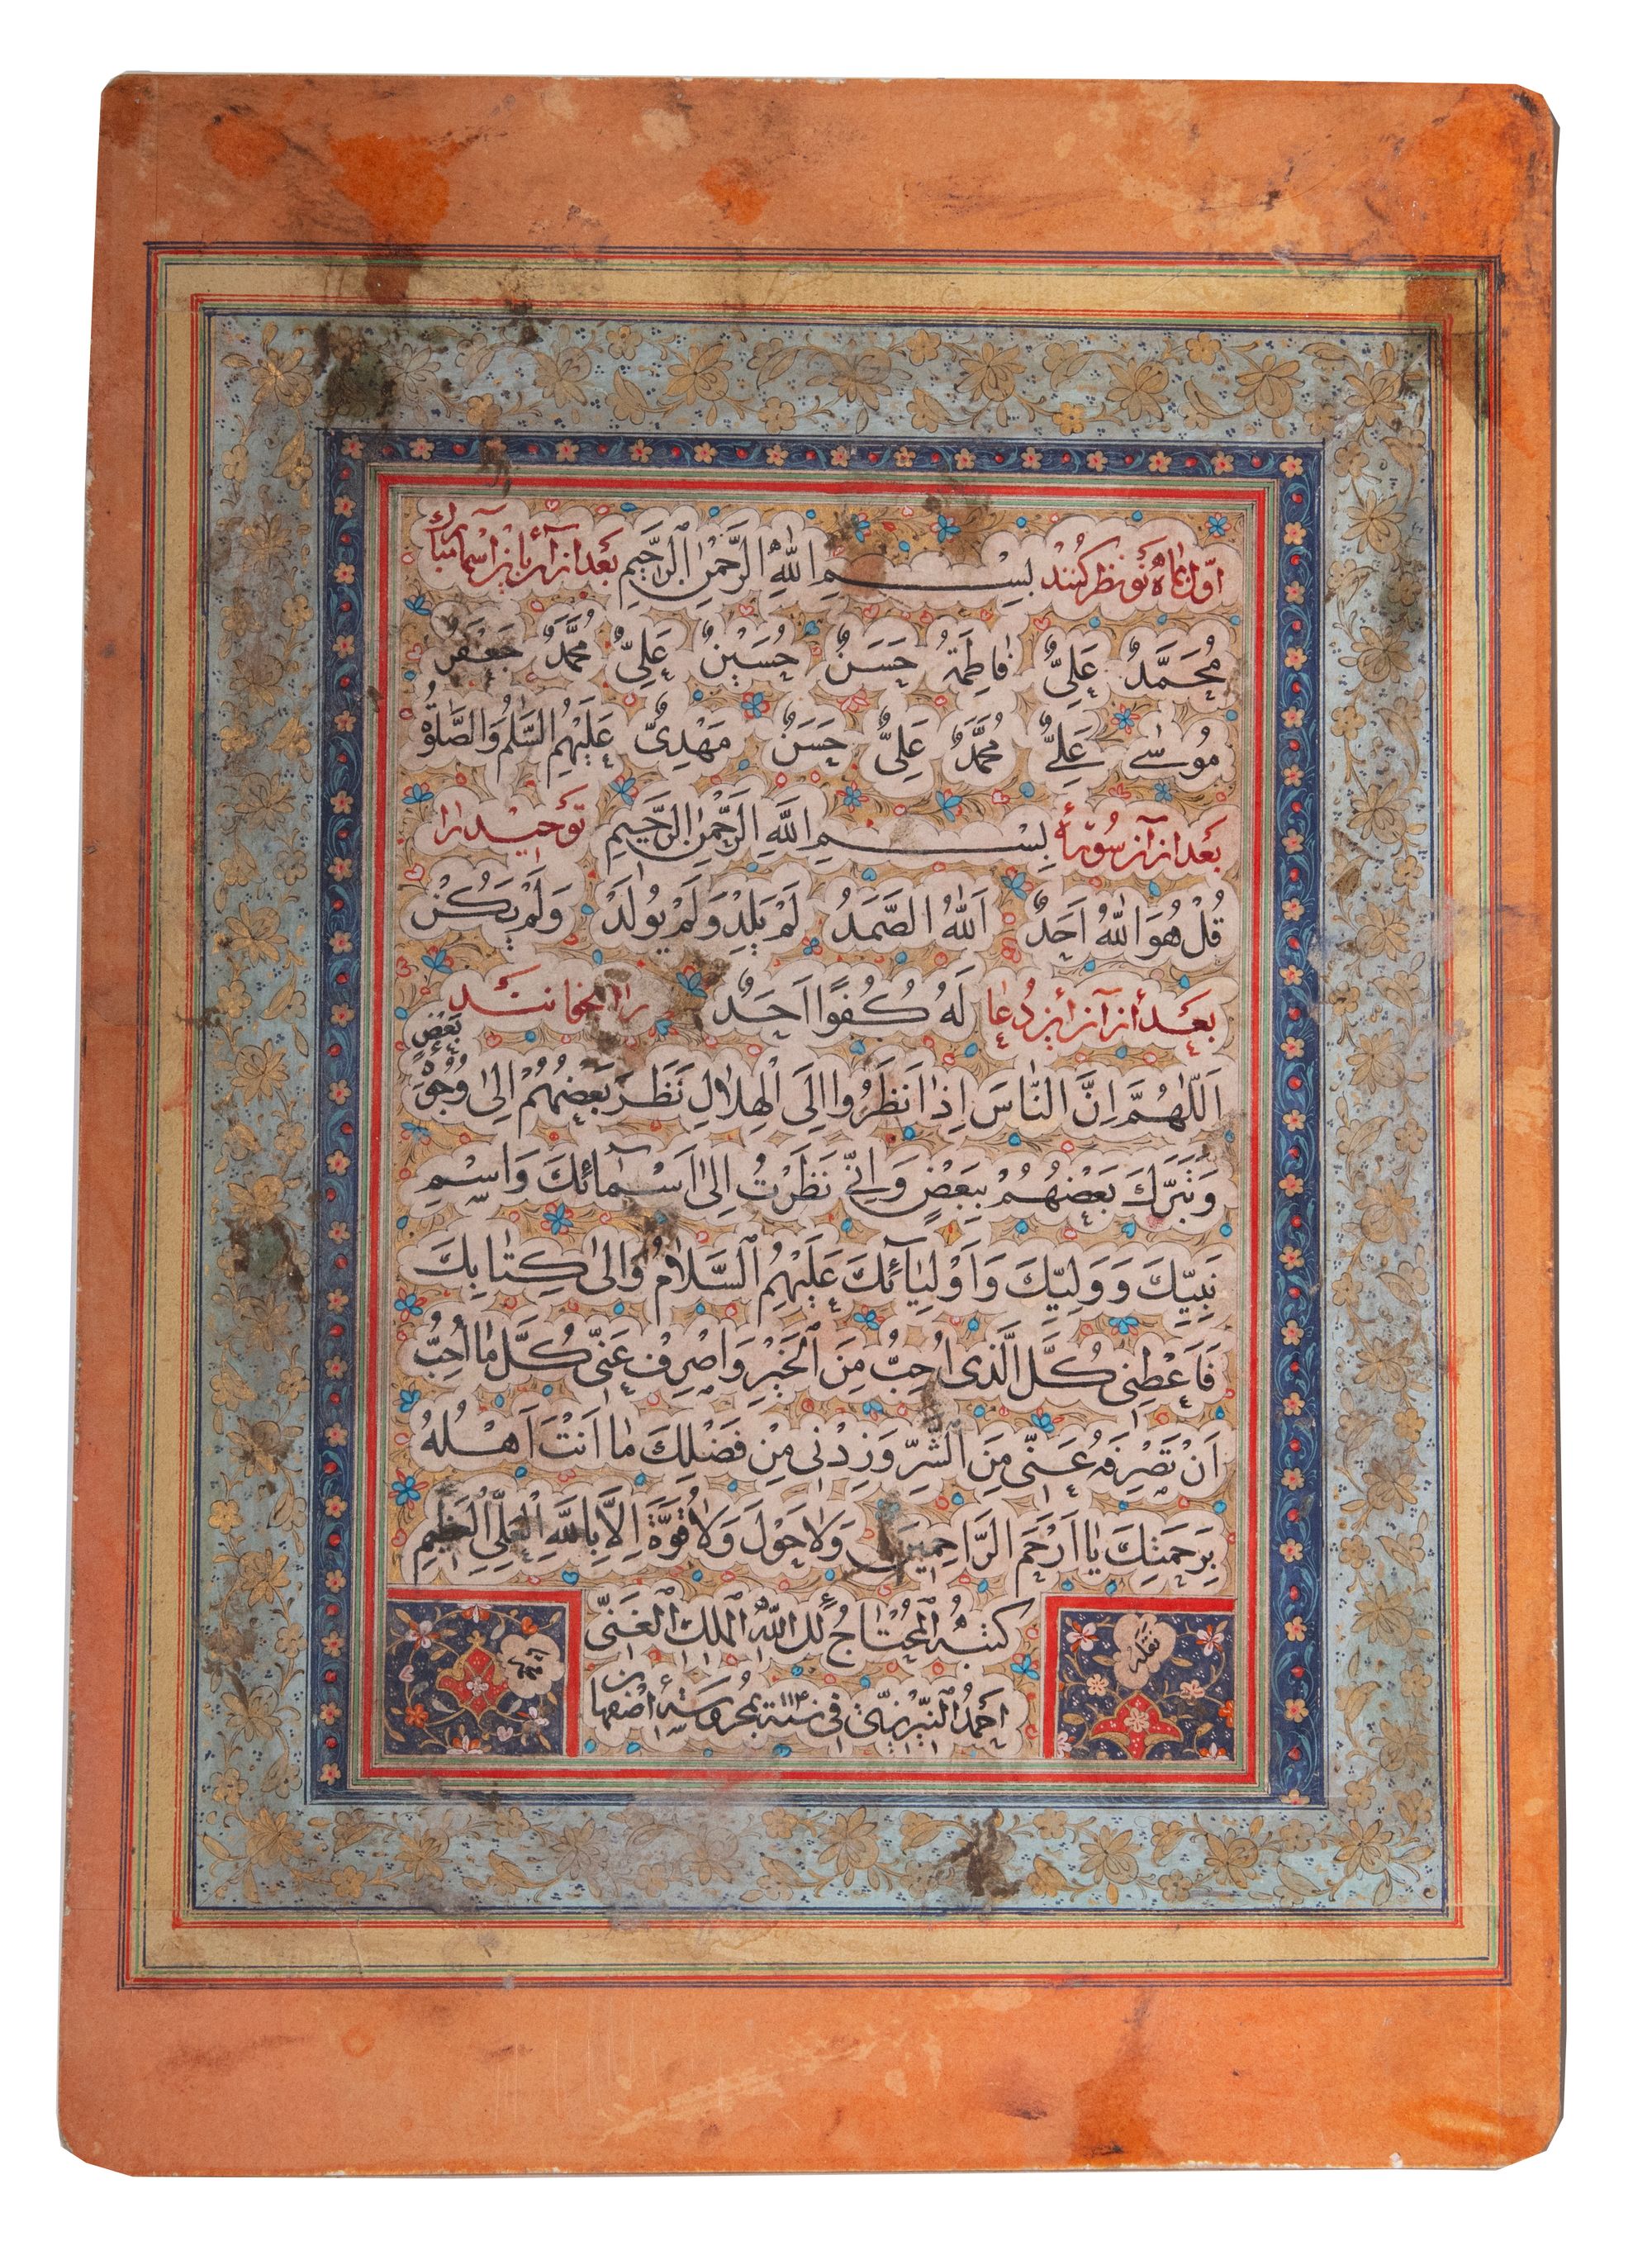 اوّل بماه نو نظر کنند بِسْمِ اللّٰهِ الرَّحْمٰنِ الرَّحِیمِ بعد از آن باین اسماء مبارک
مُحَمَّدٌ عَلِیٌّ فَاطِمَةُ حَسَنٌ حُسَیْنٌ عَلِیٌّ مُحَمَّدٌ جَعْفَرٌ
مُوسٰی عَلِیٌّ مُحَمَّدٌ عَلِیٌّ حَسَنٌ مَهْدِیٌّ عَلَیْهِمُ السَّلٰمُ وَالصَّلٰوةُ
بعد از آن سورهٔ بِسْمِ اللّٰهِ الرَّحْمٰنِ الرَّحِیمِ توحید را
قُلْ هُوَ اللّٰهُ اَحَدٌ اَللّٰهُ الصَّمَدُ لَمْ یَلِدْ وَلَمْ یُولَدْ وَلَمْ یَکُنْ
بعد از آن این دعا لَهُ کُفُوًا اَحَدٌ را بخوانند
اَللّٰهُمَّ اِنَّ النَّاسَ اِذَا نَظَرُوا اِلَی الْهِلٰالِ نَظَرَ بَعْضُهُمْ اِلٰی وُجُوْهِ بَعْضٍ
وَتَبَرَّكَ بَعْضُهُمْ بِبَعْضٍ وَاِنّی نَظَرْتُ اِلٰی اَسْمٰٓائِكَ وَاسْمِ
نَبِیِّكَ وَوَلِیِّكَ وَاَوْلِیٰٓائِكَ عَلَیْهِمُ السَّلٰامُ وَاِلٰی کِتٰابِكَ
فَاَعْطِنی کُلَّ الَّذی اُحِبُّ مِنَ الْخَیْرِ وَاصْرِفْ عَنّی کُلَّ مٰا اُحِبُّ
اَنْ تَصْرِفَهُ عَنّی مِنَ الشَّرِّ وَزِدْنی مِنْ فَضْلِكَ مٰا اَنْتَ اَهْلُهُ
بِرَحْمَتِكَ یٰا اَرْحَمَ الرَّاحِمینَ وَلٰا حَوْلَ وَلٰا قُوَّةَ اِلَّا بِاللّٰهِ الْعَلِیِّ الْعَظیمِ
کتبه المحتاج الی اللّٰه الملك الغنیّ
نمقه
احمد النیریزیّ فی سنة ۱۱۴ بمحروسهٔ اصفهان